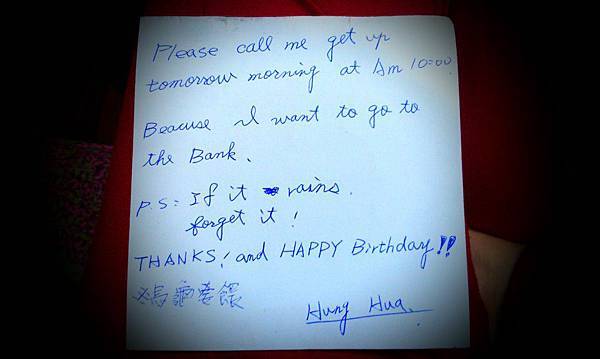 Please call me get up
tomorrow morning at Am 10:00.
Beacuse I want to go to
the Bank.
P.S: If it rains.
forget it!
THANKS! and HAPPY Birthday!!
※烏龜要餵
Hung Hua.